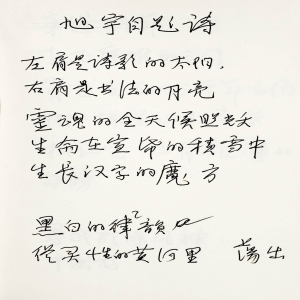 旭宇自题诗
左肩是诗歌的太阳
右肩是书法的月亮
靈魂的全天候照耀
生命在宣纸的積雪中
生長汉字的魔方
黑白的律韻
从 的黄河里 荡出